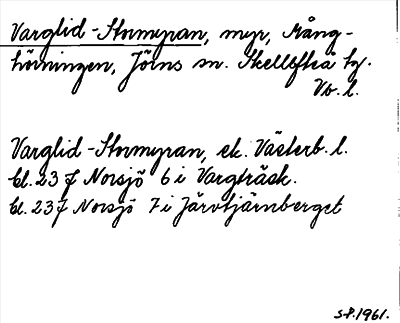 Varglid-Stormyran, myr, Mång-
hörningen, Jörns sn. Skellefteå tg.
Vb. l.
Varglid-Stormyran, ek. Västerb. l.
bl. 23 J Norsjö 6 i Vargträsk.
bl. 23 J Norsjö 7 i Järvtjärnberget
S-P. 1961.